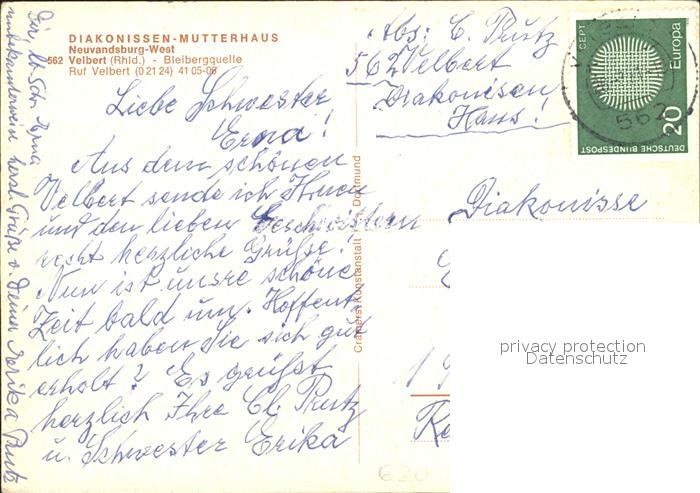 DIAKONISSEN-MUTTERHAUS
Neuvandsburg-West
562 Velbert (Rhld.) - Bleibergquelle
Ruf Velbert (0 21 24) 41 05-06
Liebe Schwester
Erna!
Aus dem schönen
Velbert sende ich Ihnen
und den lieben Geschwistern
recht herzliche Grüße!
Nun ist unsre schöne
Zeit bald um. Hoffent-
lich haben Sie sich gut
erholt? Es grüßt
herzlich Ihre Cl. Prutz
u. Schwester Erika
lb. Schw. Erna
herzl. Grüße v. Deiner Erika Prutz
Cramers Kunstanstalt Dortmund
Abs: C. Prutz
562 Velbert
Diakonissen
Haus!
CEPT
Europa
20
DEUTSCHE BUNDESPOST
562
Diakonisse
privacy protection
Datenschutz
620